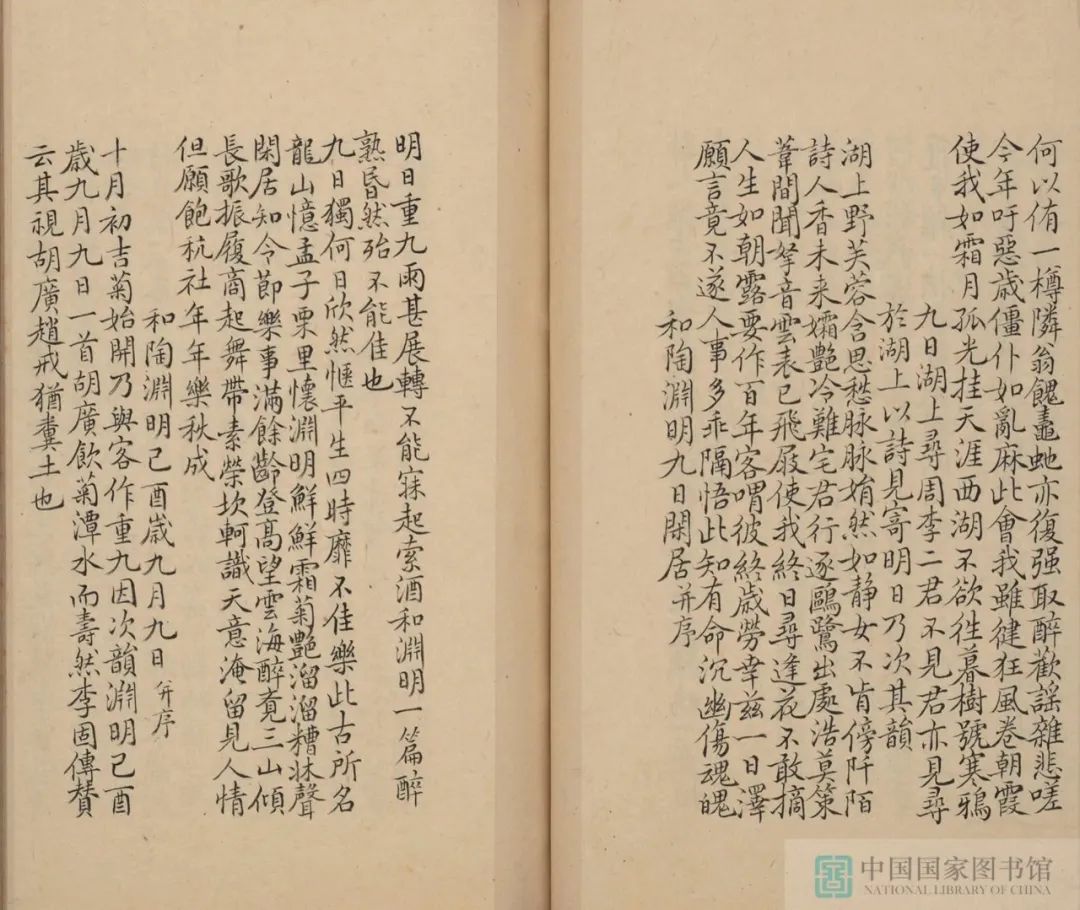 何以侑一樽隣翁餽鼃虵亦復强取醉歡謡雜悲嗟
今年吁惡歲僵仆如亂麻此會我雖健狂風卷朝霞
使我如霜月孤光挂天涯西湖不欲徃暮樹號寒鴉
九日湖上尋周李二君不見君亦見尋
於湖上以詩見寄明日乃次其韻
湖上野芙蓉含思愁脉脉娟然如静女不肯傍阡陌
詩人杳未来孀艷冷難宅君行逐鷗鷺出處浩莫策
葦間聞拏音雲表已飛屐使我終日尋逢花不敢摘
人生如朝露要作百年客喟彼終歲勞幸兹一日澤
願言竟不遂人事多乖隔悟此知有命沉幽傷魂魄
和陶淵明九日閑居并序
明日重九雨甚展轉不能寐起索酒和淵明一篇醉
熟昏然殆不能佳也
九日獨何日欣然愜平生四時靡不佳樂此古所名
龍山憶孟子栗里懷淵明鮮鮮霜菊艷溜溜糟牀聲
閑居知令節樂事滿餘齡登高望雲海醉覔三山傾
長歌振履商起舞帶索榮坎軻識天意淹留見人情
但願飽秔社年年樂秋成
和陶淵明己酉歲九月九日并序
十月初吉菊始開乃與客作重九因次韻淵明己酉
歲九月九日一首胡廣飲菊潭水而壽然李固傳賛
云其視胡廣趙戒猶糞土也
中国国家图书馆
NATIONAL LIBRARY OF CHINA